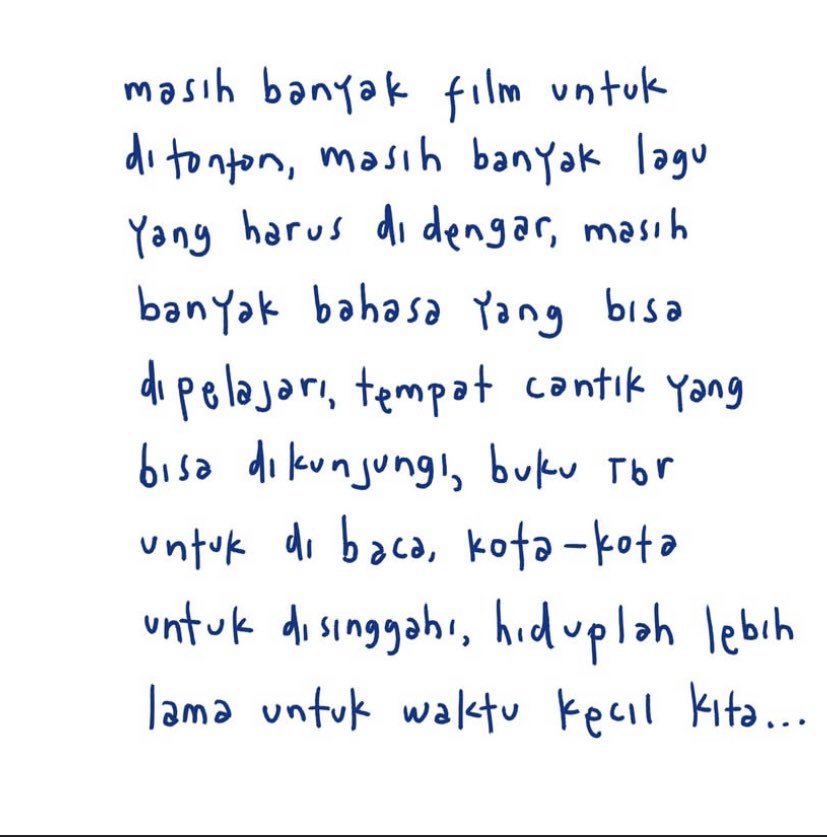 masih banyak film untuk
ditonton, masih banyak lagu
yang harus di dengar, masih
banyak bahasa yang bisa
dipelajari, tempat cantik yang
bisa dikunjungi, buku Tbr
untuk di baca, kota-kota
untuk disinggahi, hiduplah lebih
lama untuk waktu kecil kita...